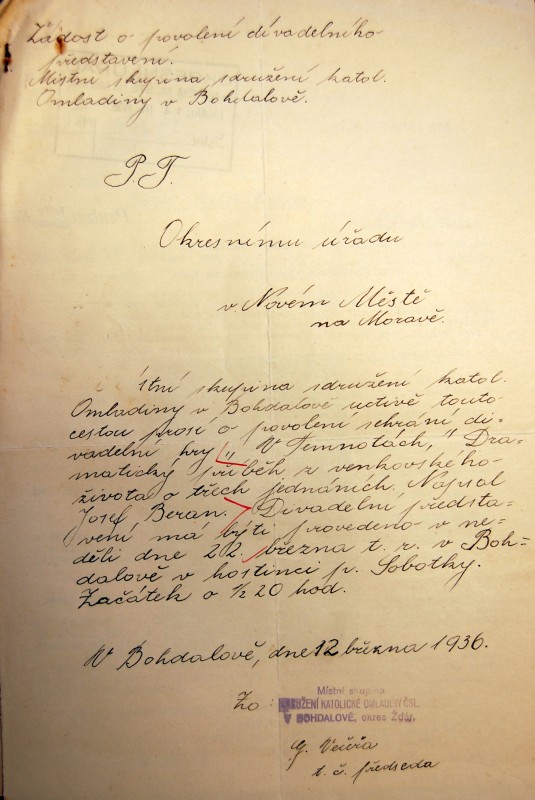 Žádost o povolení divadelního
představení.
Místní skupina sdružení katol.
Omladiny v Bohdalově.
P.T.
Okresnímu úřadu
v Novém Městě
na Moravě.
ístní skupina sdružení katol.
Omladiny v Bohdalově uctivě touto
cestou prosí o povolení sehrání di-
vadelní hry „V Temnotách," Dra-
matický příběh z venkovského
života o třech jednáních. Napsal
Josef Beran. Divadelní předsta-
vení má býti provedeno v ne-
děli dne březnа t. r. v Boh-
dalově v hostinci p. Sobotky.
Začátek o ½ 20 hod.
V Bohdalově, dne 12 března 1936.
Za
Místní skupina
SDRUŽENÍ KATOLICKÉ OMLADINY ČSL.
V BOHDALOVĚ, okres Žďár.
t. č. předseda